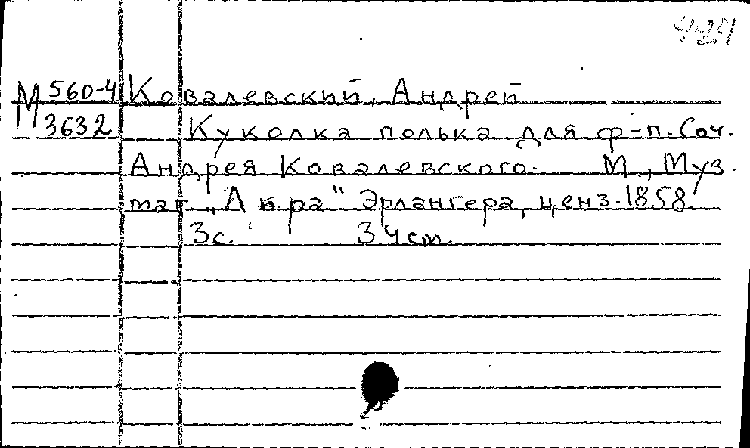 424
М 560-4 Ковалевский, Андрей
3632 Куколка полька для ф-п. Соч.
Андрея Ковалевского. М., Муз.
маг. „Лира" Эрлангера, ценз. 1858.
3с. 3 чст.